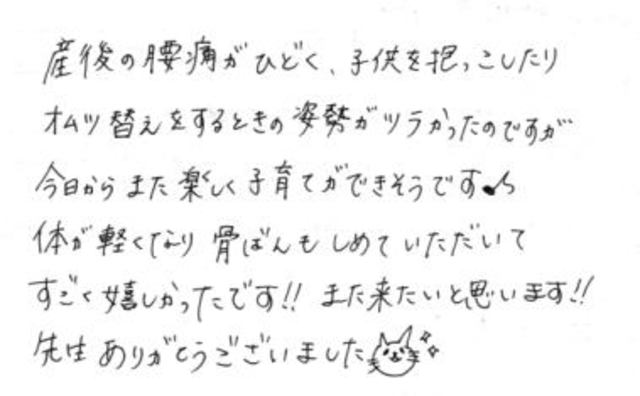 産後の腰痛がひどく、子供を抱っこしたり
オムツ替えをするときの姿勢がツラかったのですが
今日からまた楽しく子育てができそうです♪
体が軽くなり骨ばんもしめていただいて
すごく嬉しかったです!! また来たいと思います!!
先生ありがとうございました